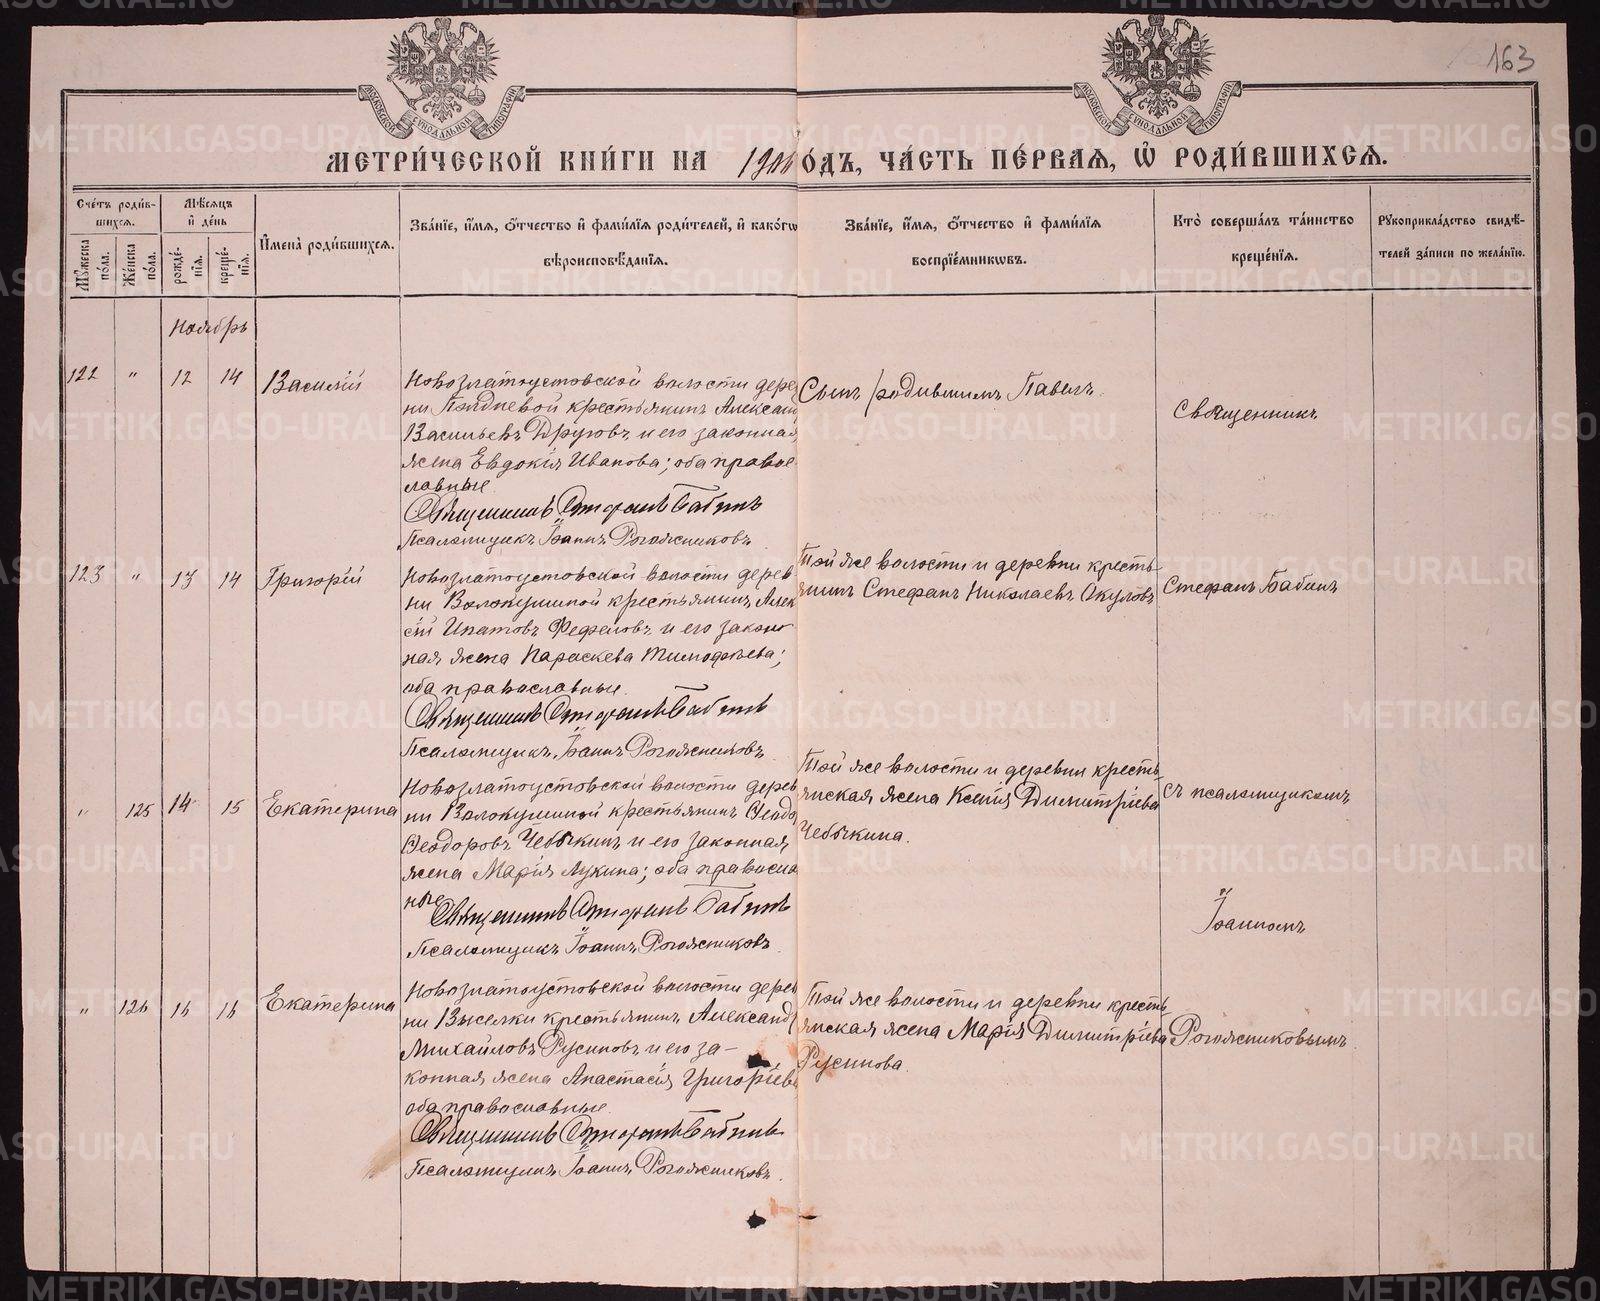 163
МОСКОВСКОЙ СѴНОДАЛЬНОЙ ТИПОГРАФІИ
МОСКОВСКОЙ СѴНОДАЛЬНОЙ ТИПОГРАФІИ
МЕТРИ́ЧЕСКОЙ КНИ́ГИ НА ОДЪ, ЧА́СТЬ ПЕ́РВАѦ, Ѿ РОДИ́ВШИХСѦ.
Сче́тъ роди́в-
шихсѧ.
Мѣ́сѧцъ
и҆ де́нь
Мꙋ́жеска по́ла.
Же́нска по́ла.
рожде́-нїѧ.
креще́-нїѧ.
И҆мена̀ роди́вшихсѧ.
Зва́нїе, и҆́мѧ, ѻ҆́тчество и҆ фами́лїѧ роди́телей, и҆ како́гѡ
вѣроисповѣ́данїѧ.
Зва́нїе, и҆́мѧ, ѻ҆́тчество и҆ фами́лїѧ
воспрїе́мникѡвъ.
Кто̀ соверша́лъ та́инство
креще́нїѧ.
Рꙋкоприкла́дство свидѣ́-
телей за́писи по жела́нїю.
Ноябрь
122 " 12 14 Василій
Новозлатоустовской волости дере
ни Полдневой крестьянинъ Александ
Васильевъ Друговъ и его законная
жена Евдокія Иванова; оба правос
лавные
Священникъ Стефанъ Бабинъ
Псаломщикъ Іоаннъ Рогожниковъ.
Сынъ родившимъ Павелъ.
Священникъ
123 " 13 14 Григорій
Новозлатоустовской волости дерев
ни Волокушиной крестьянинъ Алек
сій Ипатовъ Фефеловъ и его закон
ная жена Параскева Тимофеева;
оба православные.
Священникъ Стефанъ Бабинъ
Псаломщикъ Іоаннъ Рогожниковъ.
Той же волости и деревни кресть
янинъ Стефанъ Николаевъ Окуловъ
Стефанъ Бабинъ
" 125 14 15 Екатерина
Новозлатоустовской волости дерев
ни Волокушиной крестьянинъ Ѳеодо
Ѳеодоровъ Чебыкинъ и его законная
жена Марія Лукина; оба правосла
ные
Священникъ Стефанъ Бабинъ
Псаломщикъ Іоаннъ Рогожниковъ.
Той же волости и деревни кресть
янская жена Ксенія Димитріева
Чебыкина.
съ псаломщикомъ
Іоанномъ
" 126 16 16 Екатерина
Новозлатоустовской волости дерев
ни Выселки крестьянинъ Александр
Михайловъ Русиновъ и его за-
конная жена Анастасія Григоріева
оба православные.
Священникъ Стефанъ Бабинъ
Псаломщикъ Іоаннъ Рогожниковъ.
Той же волости и деревни кресть
янская жена Марія Димитріева
Русинова.
Рогожниковымъ
METRIKI.GASO-URAL.RU